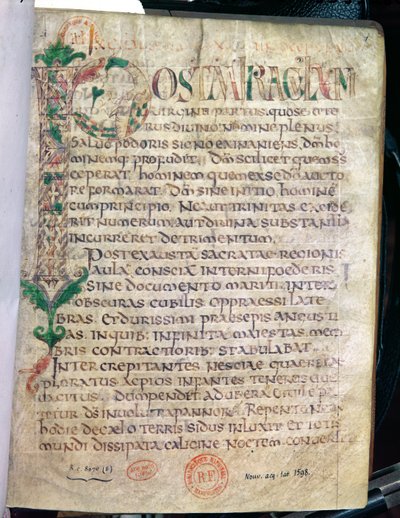 POST MIRACULUM
VIRGINIS PARTUS. QUOSE UTE
RUS DIVINO NOMINE PLENUS:
SALVO PUDORIS SIGNO EXINANIENS. DM HO
MINEMQ. PROFUDIT. DM SCILICET QUEM SUS
CEPERAT. HOMINEM QUEM EX SE DO AUCTO
RE FORMARAT. DM SINE INITIO HOMINE
CUM PRINCIPIO. NE AUT TRINITAS EXCEDE
RIT NUMERUM. AUT DIUINA SUBSTANTIA
INCURRERET DETRIMENTUM.
POST EXAUSTA SACRATAE REGIONIS
AULA CONSCIA INTERNI FOEDERIS
SINE DOCUMENTO MARITI. INTER
OBSCURAS CUBILIS OPPRAESSI LATE
BRAS. ET DURISSIMI PRAESEPIS ANGUSTI
AS. INQUIB: INFINITA MAIESTAS MEM
BRIS CONTRACTIORIB: STABULABAT.
INTER CREPITANTES NESCIAE QUAERELAE
PLORATUS
INFANTES TENEROS
DUM PENDET AD UBERA
TETUR DS INUOLUTRA PANNORU. REPENTE
HODIE DE CAELO TERRIS SIDUS INLUXIT. ET TOTIUS
MUNDI DISSIPATA CALIGINE NOCTEM
R. c. 8070 (6)
R.F.
Nouv. acq. lat. 1598.